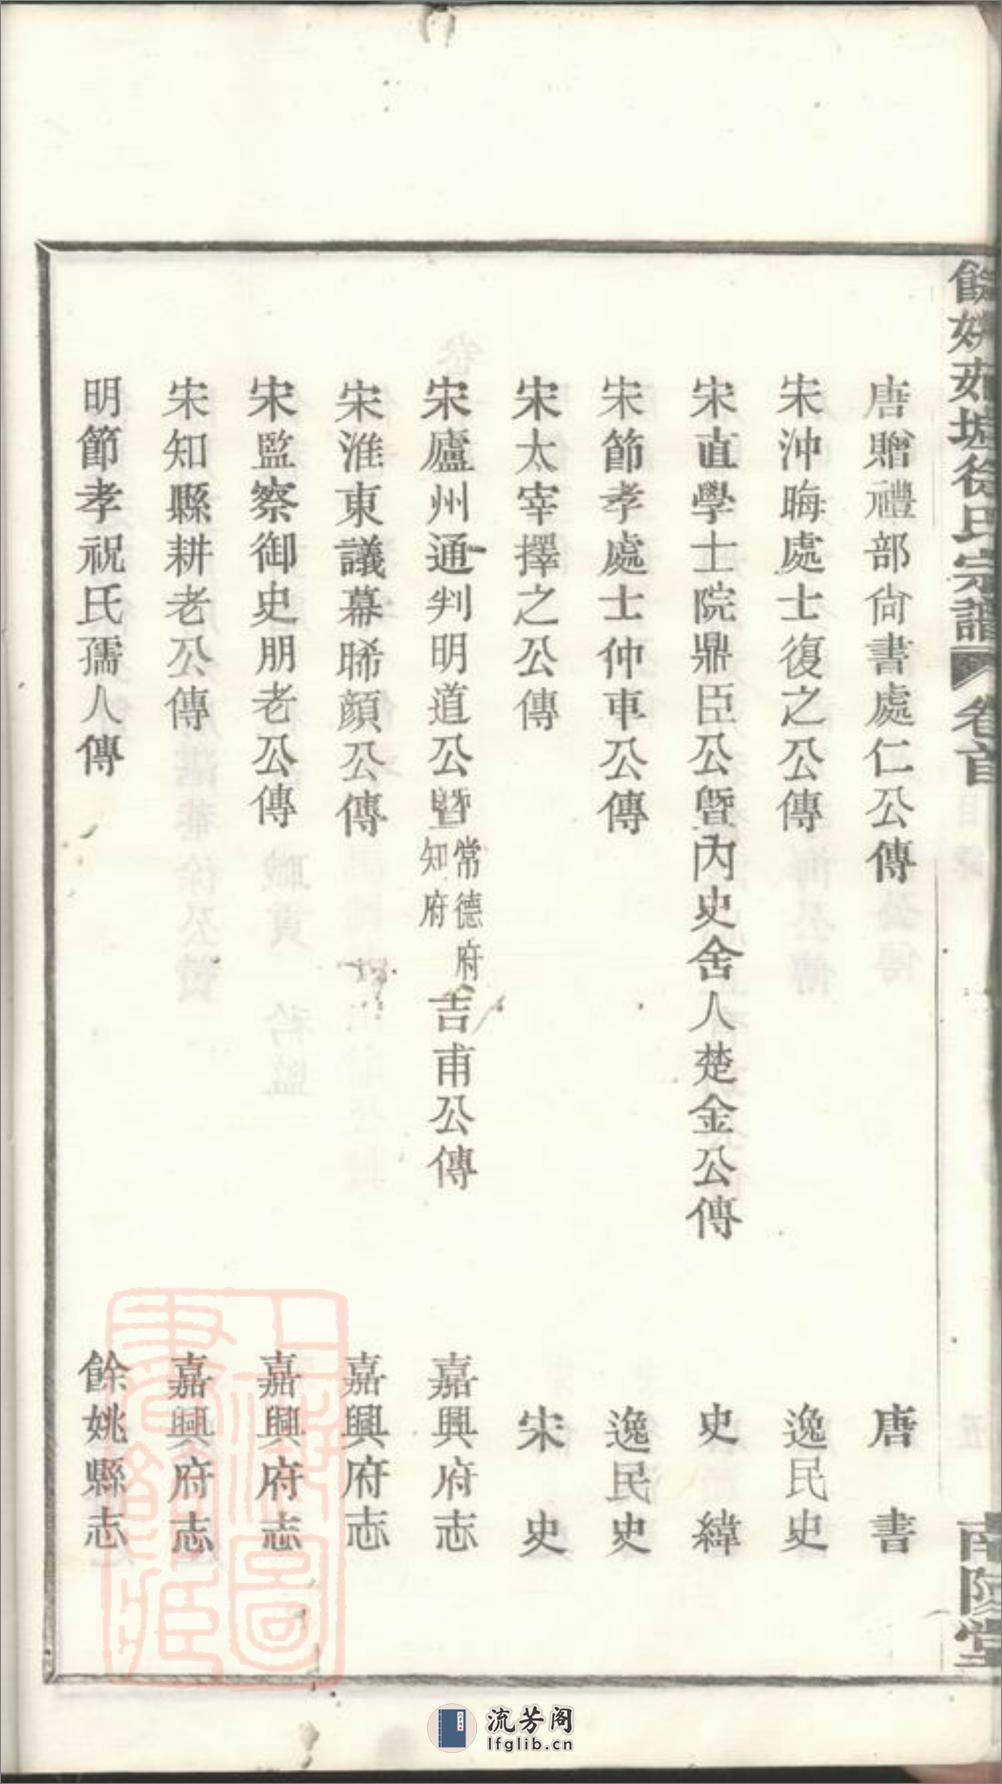 餘姚茹塘徐氏宗譜 卷首 南陔堂
唐贈禮部尙書處仁公傳 唐書
宋沖晦處士復之公傳 逸民史
宋直學士院鼎臣公暨內史舍人楚金公傳 史緯
宋節孝處士仲車公傳 逸民史
宋太宰擇之公傳 宋史
宋廬州通判明道公暨常德府知府吉甫公傳 嘉興府志
宋淮東議幕晞顔公傳 嘉興府志
宋監察御史朋老公傳 嘉興府志
宋知縣耕老公傳 嘉興府志
明節孝祝氏孺人傳 餘姚縣志
上海圖書館藏
流芳阁
lfglib.cn